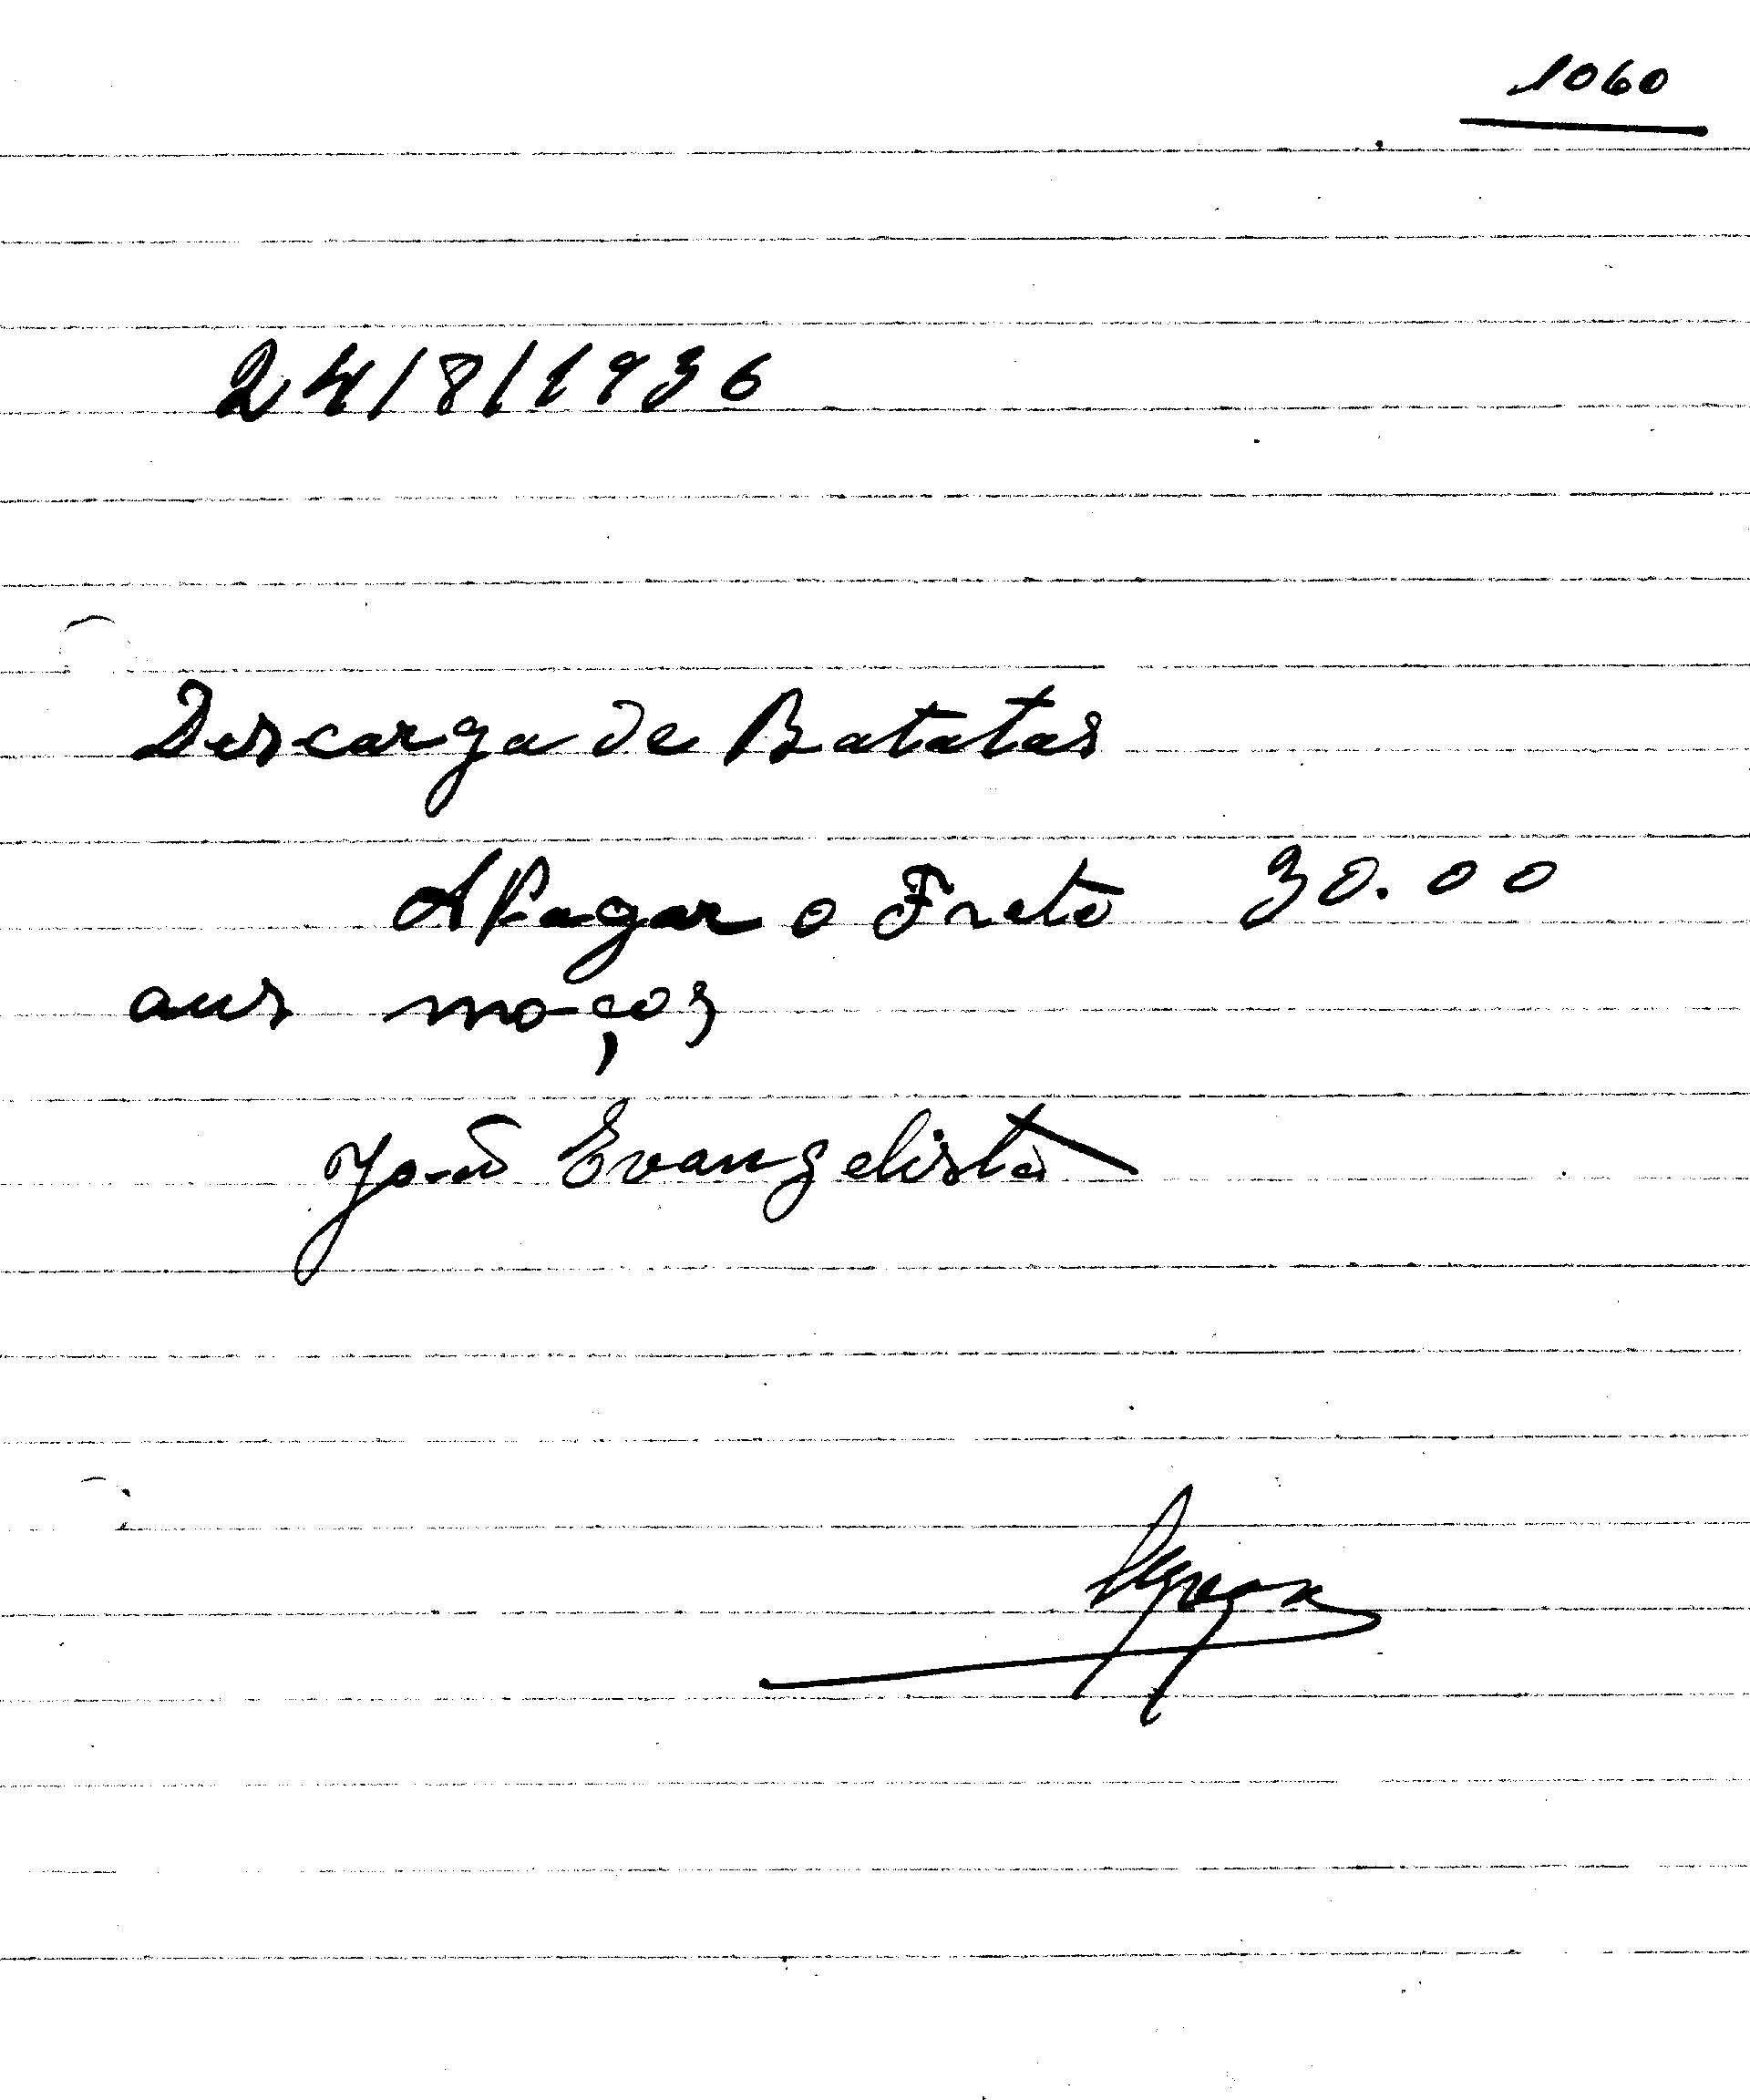 1060
24/8/1936
Descarga de Batatas
A Pagar o Frete 30.00
aus moços
João Evangelista